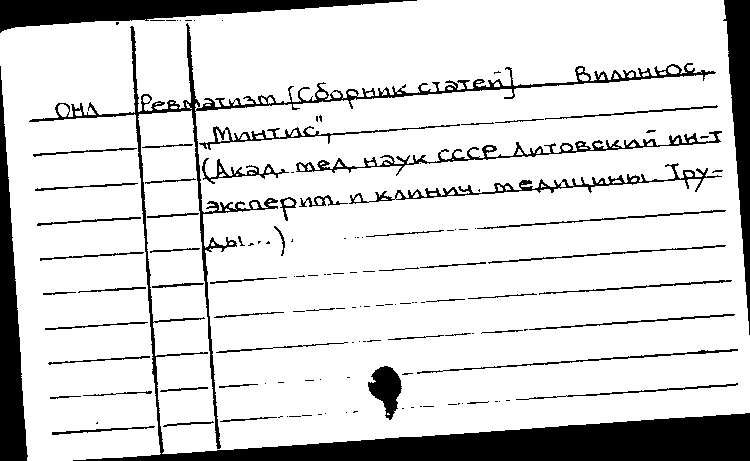 ОНЛ Ревматизм. [Сборник статей] Вильнюс,
„Минтис",
(Акад. мед. наук СССР. Литовский ин-т
эксперим. и клинич. медицины. Тру-
ды...).